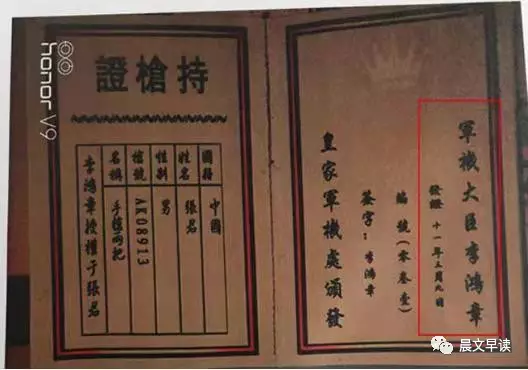 軍機大臣李鴻章
發證 十一年 月九日
編號(零叁壹)
簽字:李鴻章
皇家軍機處頒發
持槍證
國籍 中國
姓名 張名
性别 男
槍號 AK08913
名稱 手槍兩把
李鴻章授權于張名
honor V9
晨文早读